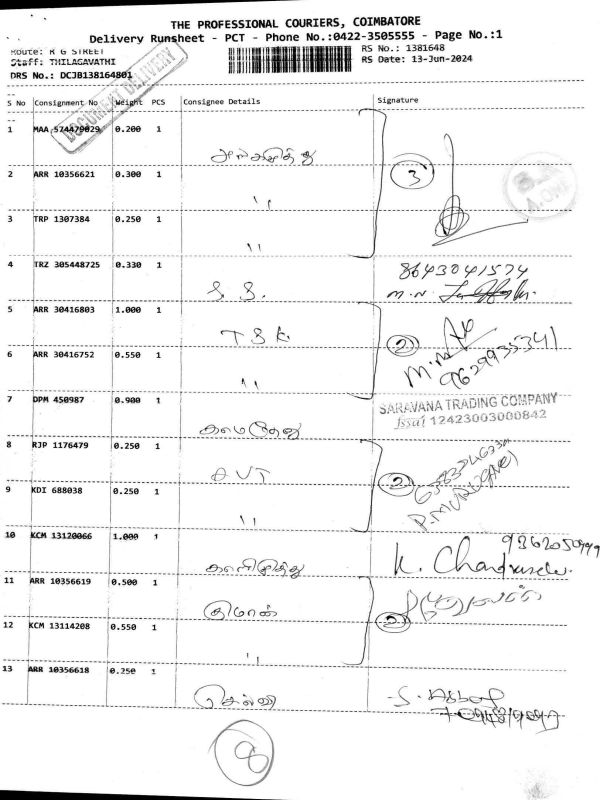 THE PROFESSIONAL COURIERS, COIMBATORE
Delivery Runsheet - PCT - Phone No.:0422-3505555 - Page No.:1
Route: R G STREET
RS No.: 1381648
Staff: THILAGAVATHI
RS Date: 13-Jun-2024
DRS No.: DCJB138164801
DOCUMENT DELIVERY
S No Consignment No Weight PCS Consignee Details Signature
1 MAA 574479029 0.200 1
2 ARR 10356621 0.300 1 ''
3
3 TRP 1307384 0.250 1 ''
A-ONE
4 TRZ 305448725 0.330 1 S. S.
8643041574
M.N.
5 ARR 30416803 1.000 1 T S K
2
6 ARR 30416752 0.550 1 ''
9629935341
7 DPM 450987 0.900 1
SARAVANA TRADING COMPANY
fssai 12423003000842
8 RJP 1176479 0.250 1 AVT
2
9 KDI 688038 0.250 1 ''
P.MURUGAVEL
10 KCM 13120066 1.000 1
K. Chandrasek
11 ARR 10356619 0.500 1
2
12 KCM 13114208 0.550 1 ''
13 ARR 10356618 0.250 1 செல்வி
8